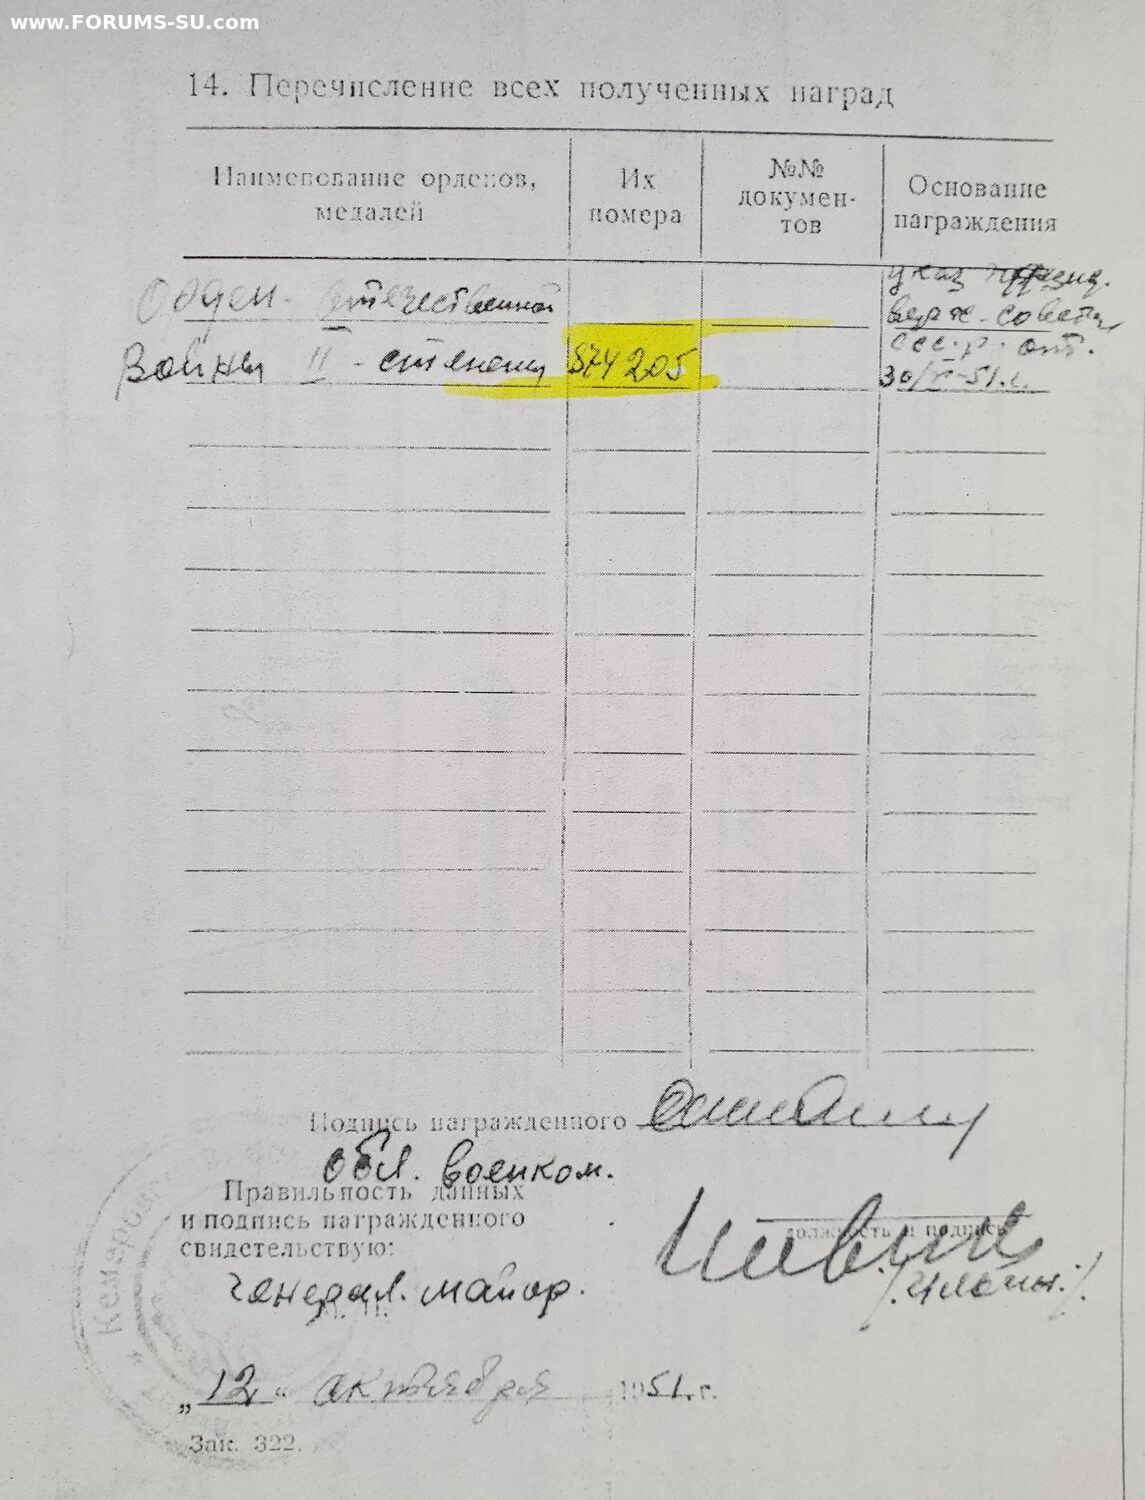 www.FORUMS-SU.com
14. Перечисление всех полученных наград
Наименование орденов, медалей
Их номера
№№ документов
Основание награждения
Орден отечественной
Войны II - степени
874205
указ през.
верх. совета
ссср от.
30/ -51.г.
Подпись награжденного
Обл. военком.
Правильность данных
и подпись награжденного
свидетельствую:
должность и подпись
генерал. майор.
М. П.
„12“ октября 1951. г.
Зак. 322.